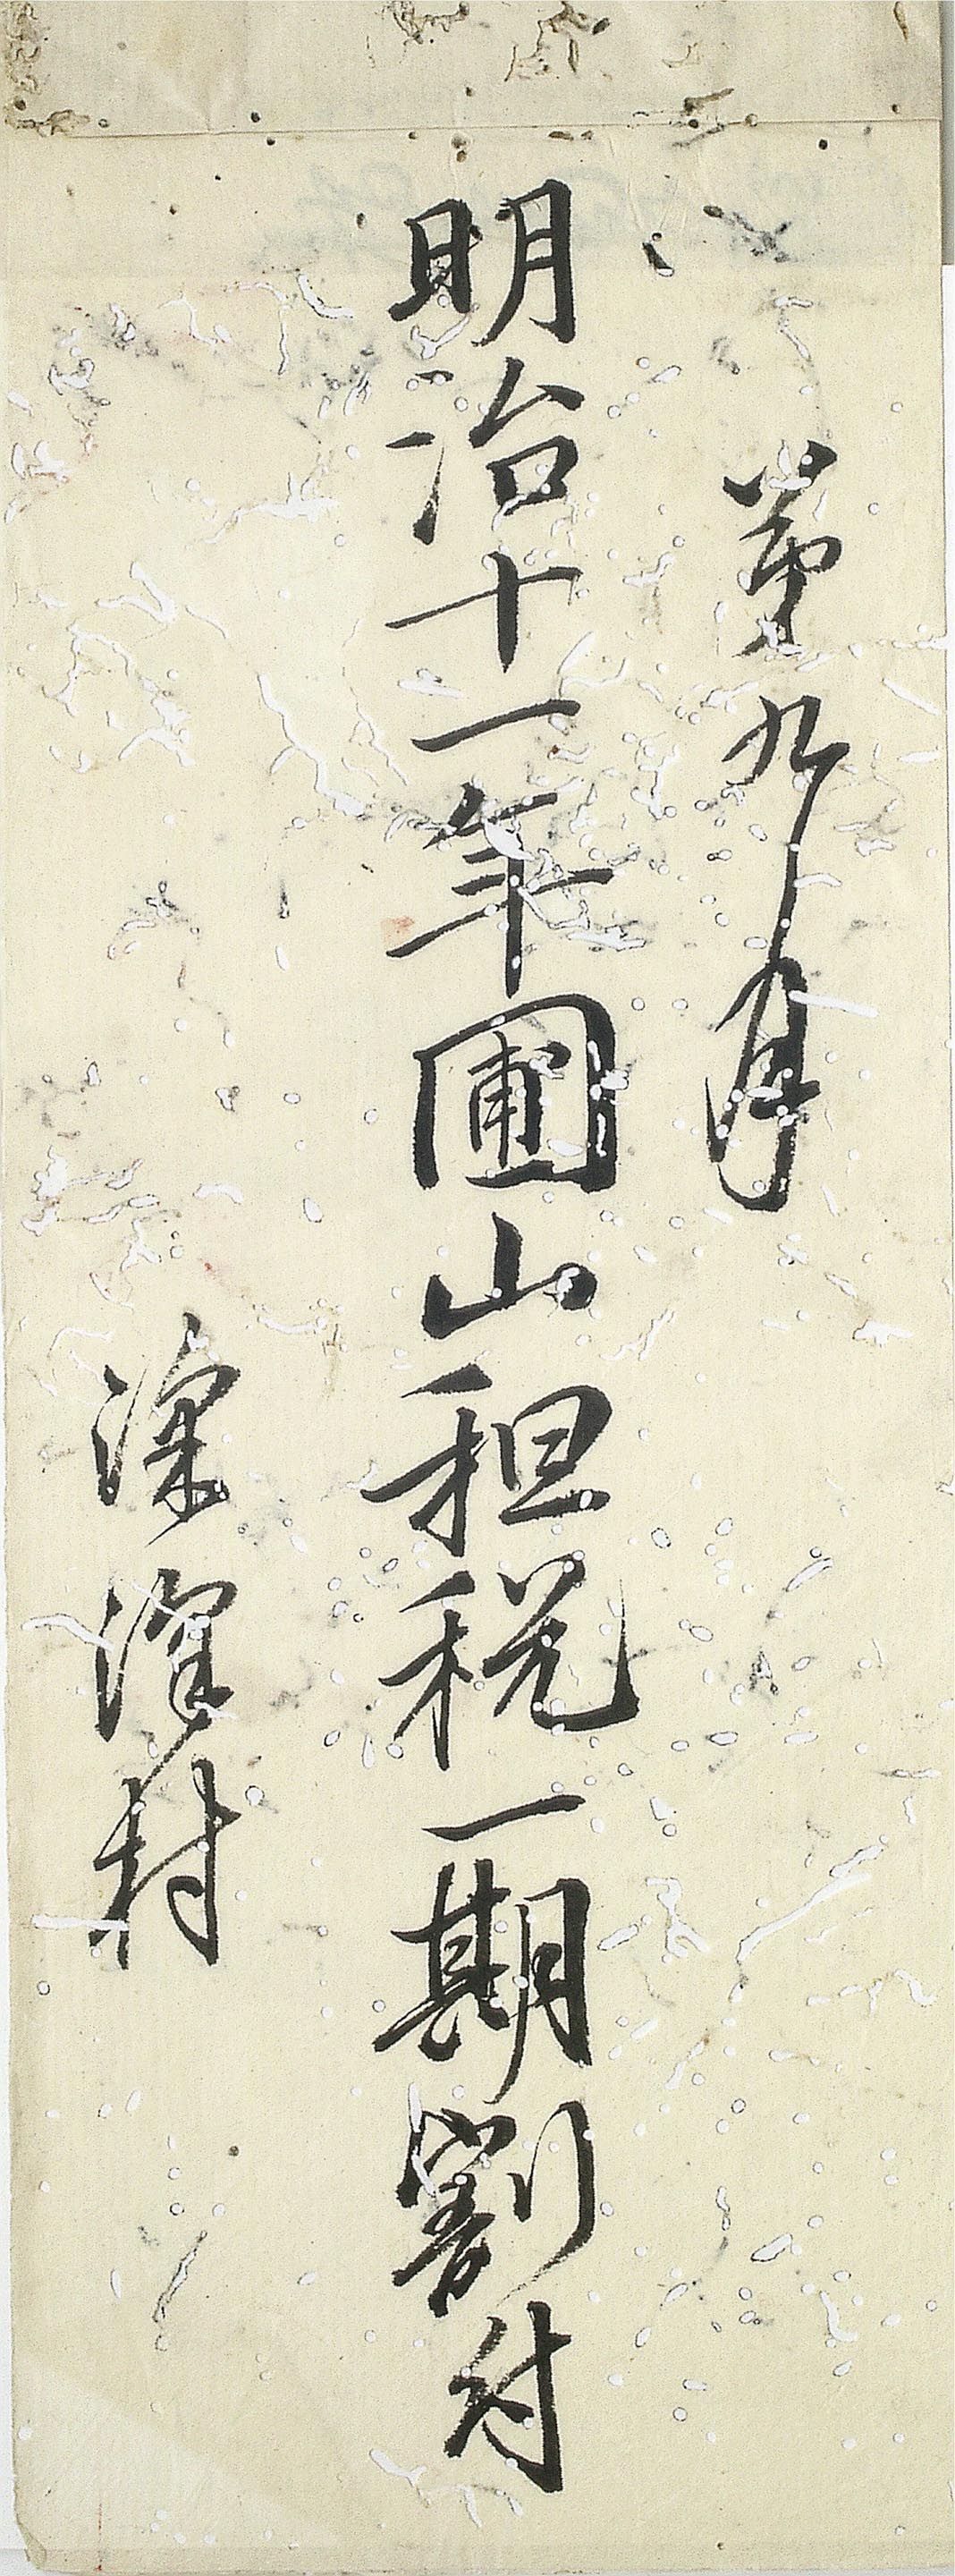 第九月
明治十一年圃山租税一期割付
深深村